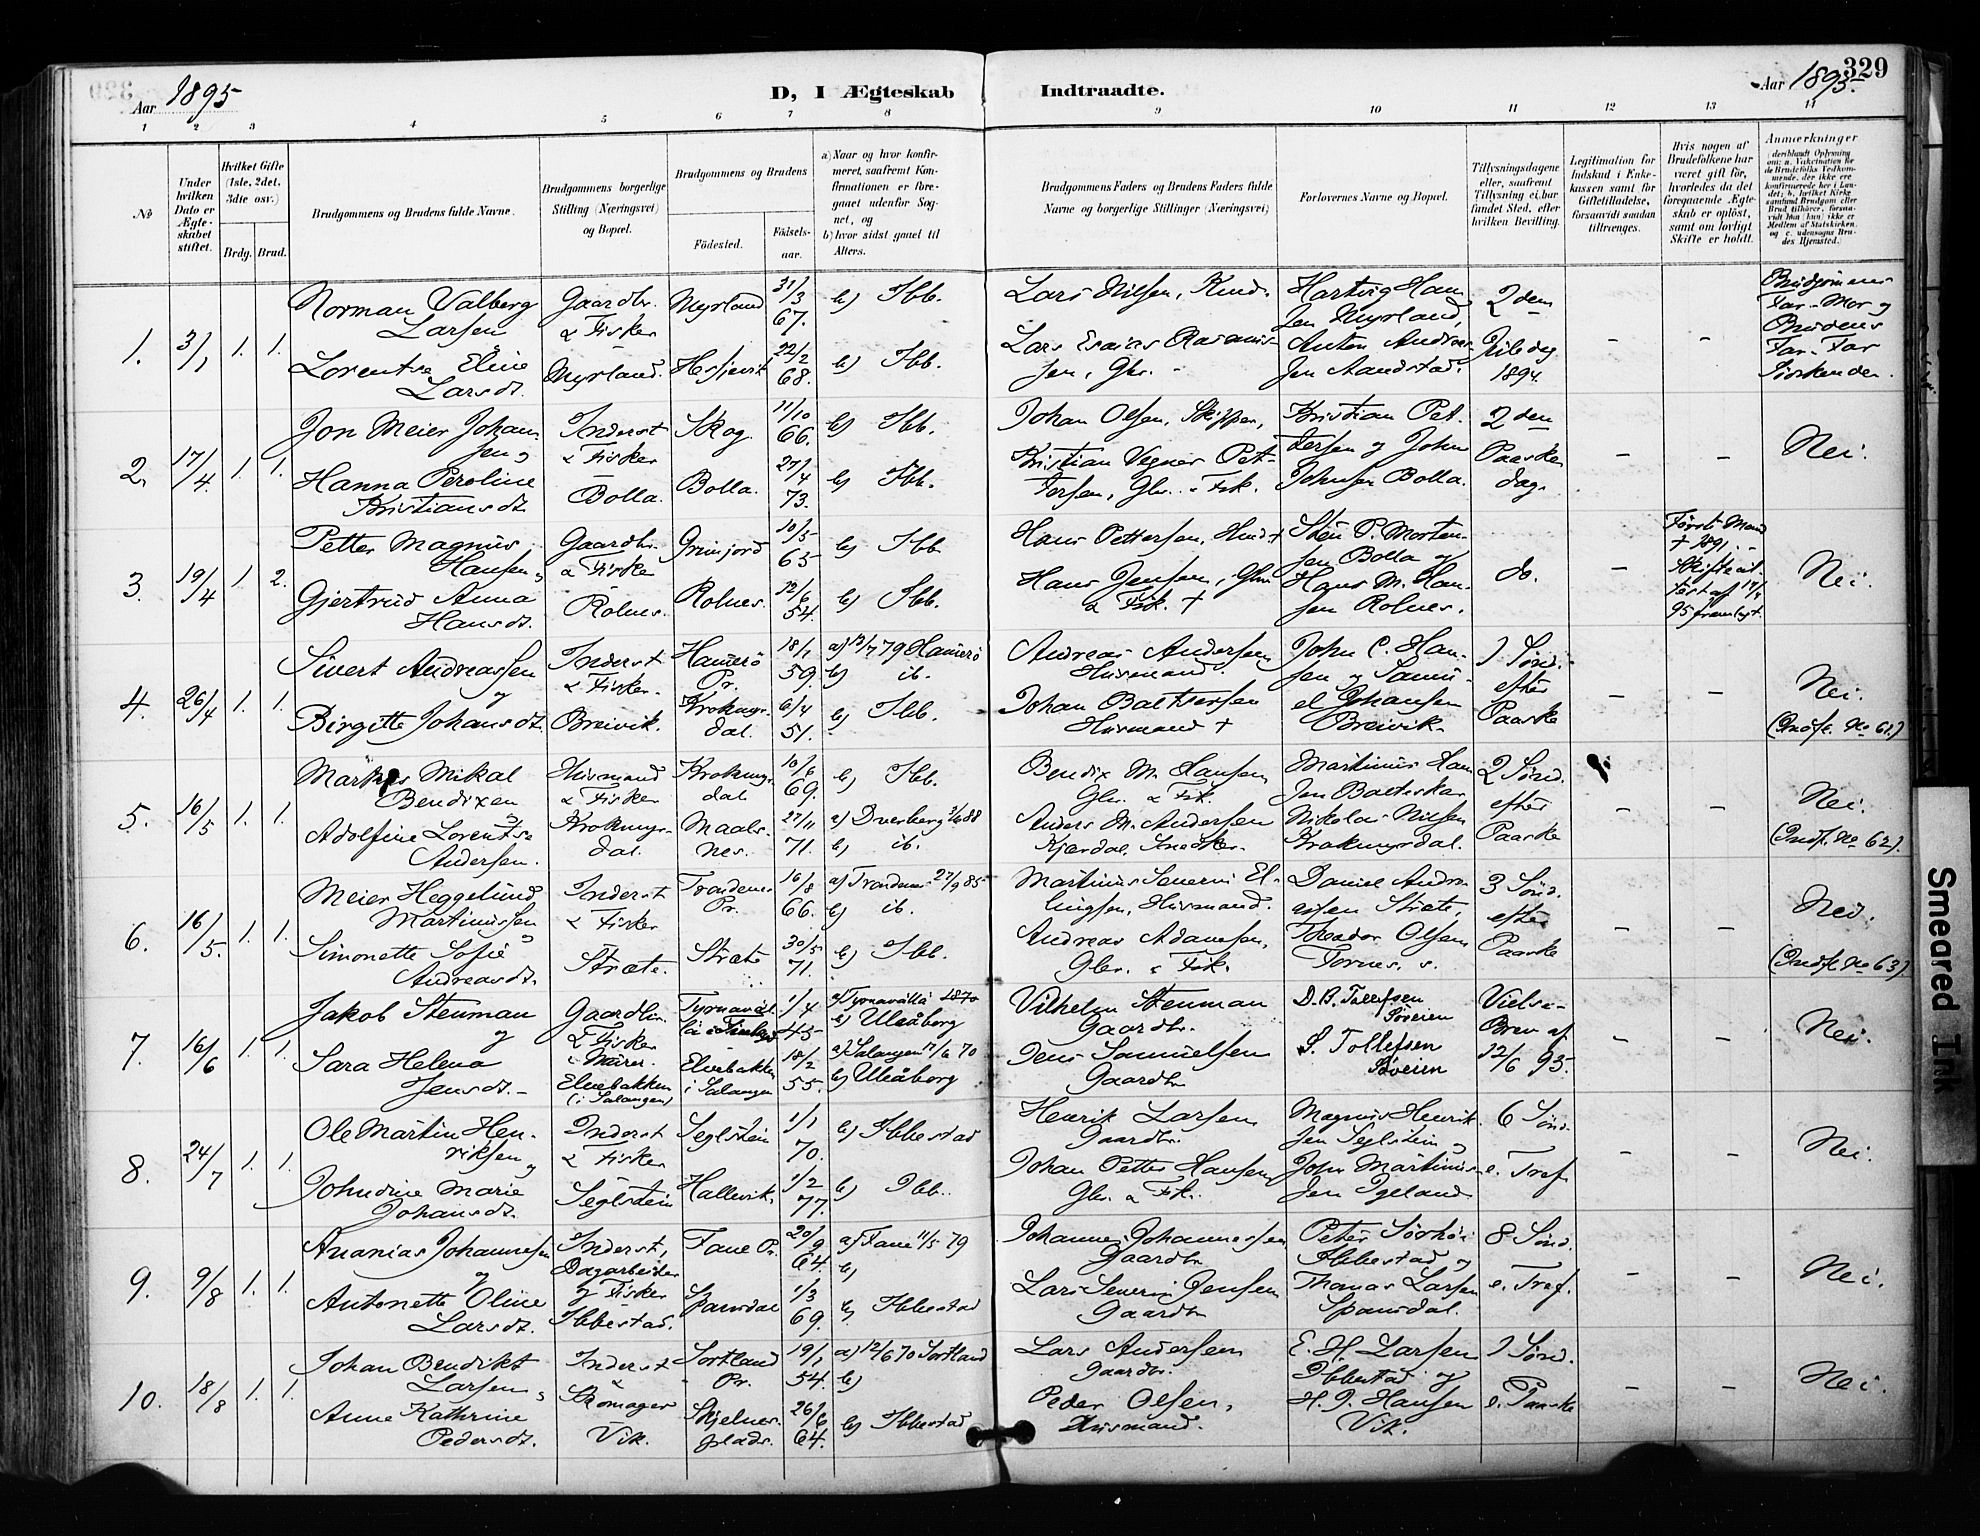 329
Aar 1895
D, I Ægteskab Indtraadte.
Aar 1895.
1 2 3 4 5 6 7 8 9 10 11 12 13 14
№
Under hvilken Dato er Ægteskabet stiftet.
Hvilket Gifte (1ste, 2det, 3dte osv.)
Brdg. Brud.
Brudgommens og Brudens fulde Navne.
Brudgommens borgerlige Stilling (Næringsvei) og Bopæl.
Brudgommens og Brudens
Fødested.
Fødselsaar.
a) Naar og hvor konfirmeret, saafremt Konfirmationen er foregaaet udenfor Sognet, og
b) hvor sidst gaaet til Alters.
Brudgommens Faders og Brudens Faders fulde Navne og borgerlige Stillinger (Næringsvei)
Forlovernes Navne og Bopæl.
Tillysningsdagene eller, saafremt Tillysning ei har fundet Sted, efter hvilken Bevilling.
Legitimation for Indskud i Enkekassen samt for Giftetilladelse, forsaavidt saadan tiltrænges.
Hvis nogen af Brudefolkene har været gift før, hvorledes da det foregaaende Ægteskab er opløst, samt om lovligt Skifte er holdt.
Anmærkninger
(deriblandt Oplysning om: a. Vakcination for de Brudefolks Vedkommende, der ikke ere konfirmerede her i Landet; b. hvilket Kirkesamfund Brudgom eller Brud tilhører, forsaavidt han (hun) ikke er Medlem af Statskirken, og c. udensogns Brudes Hjemsted.
1. 3/1 1. 1.
Norman Valberg Larsen
Lorentse Eline Larsdt.
Gaardbr. & Fisker Myrland.
Myrland 31/3 67. b) Ibb.
22/2 68. b) Ibb.
Lars Nilsen,
Lars Esaias Rasmussen, Gbr.
Hartvig Hansen Myrland, Anton Andreasjen Aandstad.
2den Juledag 1894.
- -
Brudgommens Far-Mor og Brudens Far-Far Søskende.
2. 17/4. 1. 1.
Jon Meier Johansen og
Hanna Peroline Kristiansdt.
Inderst & Fisker Bolla.
Skog. 11/10 66. b) Ibb.
Bolla. 27/4 73. b) Ibb.
Johan Olsen, Skipper,
Kristian Vegner Pettersen, Gbr. & Fisk.
Kristian Pettersen og John Johnsen Bolla.
2den Paaskedag.
- -
Nei.
3. 19/4 1. 2.
Petter Magnus Hansen,
Gjertrud Anna Hansdt.
Gaardbr. & Fisker Rolnes.
Grimjord 10/5 65 b) Ibb
Rolnes. 12/6 54. b) Ibb.
Hans Pettersen, Husm +
Hans Jensen, Gbr. & Fisk. +
Steen P. Mortensen Bolla og Hans M. Hansen Rolnes.
do.
-
Første Mand + 1891. - Skifteattest af 17/4 95 fremlagt.
Nei.
4. 26/4 1. 1.
Sivert Andreassen og
Birgitte Johansdt.
Inderst & Fisker. Breivik.
Hamerö Pr. 18/1 59 a) 13/7 79 Hamerö b) ib.
Krokmyrdal. 6/4 51. b) Ibb.
Andreas Andersen Husmand.
Johan Baltsersen Husmand +
John C. Hansen og Samuel Johansen Breivik.
1 Sønd. efter Paaske
- -
Nei.
(Indfl. No 61.)
5. 16/5 1. 1.
Markus Mikal Bendixen
Adolfine Lorentse Andersen.
Husmand & Fisker Krokmyrdal.
Krokmyrdal 10/6 69. b) Ibb.
Maalsnes. 27/11 71. a) Dverberg 88 b) ib.
Bendix M. Hansen Gbr. & Fisk.
Anders M. Andersen Kjærdal, Snedker.
Martinus Hansen Balteskar
Nikolai Nilsen Krakmyrdal.
2 Sønd. efter Paaske
- -
Nei.
(Indfl. No 62).
6. 16/5. 1. 1.
Meier Heggelund Martinussen
Simonette Sofie Andreasdt.
Inderst & Fisker Stræte.
Trondenes Pr. 16/8 66. a) Trondenes 27/9 85 b) ib.
Stræte 30/5 71. b) Ibb.
Martinus Severin Ellingsen, Husmand.
Andreas Adamsen, Gbr. & Fisk.
Daniel Andreassen Stræte,
Theodor Olsen Fornes.
3 Sønd. efter Paaske
- -
Nei.
(Indfl. No 63)
7. 16/6 1. 1.
Jakob Stenman og
Sara Helena Jensdt. -
Gaardbr. & Fisker & Murer. Elvebakken (i Salangen)
1/4 45 a) Tyrnavälla 1870 b) Uleåborg
Elvebakken i Salangen 18/2 55. a) Salangen 17/6 70 b) Uleåborg
Vilhelm Stenman Gaardbr.
Jens Samuelsen Gaardbr
D. B. Tollefsen Søveien
S. Tollefsen Søveien
Vielse-Brev af 12/6 95.
- -
Nei.
8. 24/7 1. 1.
Ole Martin Henriksen og
Johndine Marie Johansdt.
Inderst & Fisker Seglstein
Seglstein 1/1 70. b) Ibbestad
Hallevik. 1/2 77. b) Ibb.
Henrik Larsen Gaardbr.
Johan Petter Hansen Gbr. & Fisk.
Magnus Henriksen Seglstein og John Martinussen Igeland
6 Sønd. e. Tref.
- -
Nei.
9. 9/8 1. 1.
Ananias Johannesen og
Antonette Oline Larsdt.
Inderst, Dagarbeider og Fisker Ibbestad.
Fane Pr. 20/9 64. a) Fane 11/5 79 b)
Spansdal 1/3 69. b) Ibbestad
Johannes Johannessen Gaardbr
Lars Severin Jensen Gaardbr
Peter Sørhøi Ibbestad og Thomas Larsen Spansdal.
8 Sønd. e. Tref.
- -
Nei.
10. 18/8 1. 1.
Johan Bendikt Larsen,
Anne Kathrine Pedersdt.
Inderst & Skomager Vik.
Sortland Pr. 19/1 54. a) 12/6 70 Sortland b)
26/6 64. b) Ibbestad
Lars Andersen Gaardbr.
Peder Olsen, Husmand.
E. H. Larsen Ibbestad og H. J. Hansen Vik.
1 Sønd. e. Paaske
- -
Nei.
Smeared Ink